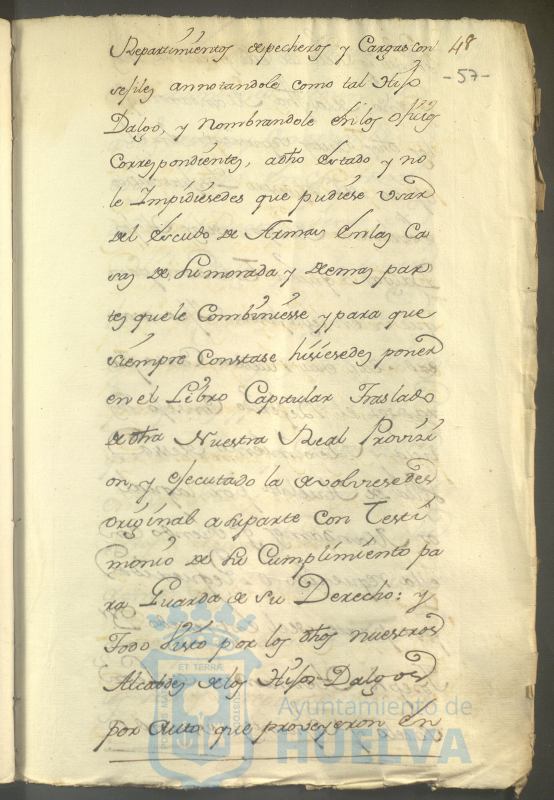 48
-57-
Repartimientos de pecheros y Cargas con
sejiles annotandole como tal Hijo
Dalgo, y Nombrandole en los ofizios
Correspondientes, a dho estado y no
le Impidiesedes que pudiese usar
del escudo de Armas en las Ca
sas de su morada y demas par
tes que le Combiniesse y para que
siempre Constase hisiesedes poner
en el Libro Capitular Traslado
de dha Nuestra Real Provizi
on, y ejecutado la devolviesedes
original a su parte con Testi
monio de su Cumplimiento pa
ra Guarda de su Derecho: y
Todo Visto por los dhos nuestros
Alcaldes de los Hijos Dalgo
por auto que proveyeron en
ET TERRAE
Ayuntamiento de
HUELVA